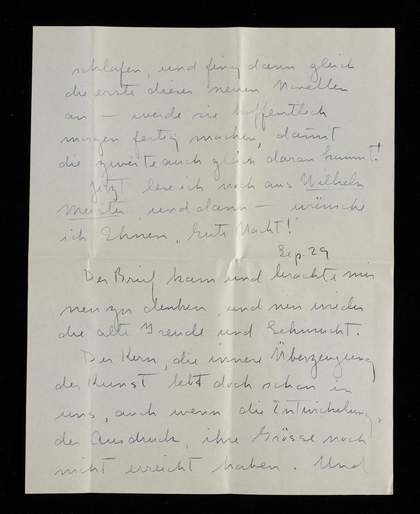 schlafen, und fing dann gleich
die erste dieser neuen Novellen
an – werde sie hoffentlich
morgen fertig machen, damit
die zweite auch gleich daran kommt!
Jetzt lese ich noch aus Wilhelm
Meister, und dann – wünsche
ich Ihnen „Gute Nacht!"
Sep. 29
Der Brief kam und brachte mir
neu zu denken, und nun wieder
die alte Freude und Sehnsucht.
Der Kern, die innere Überzeugung
der Kunst lebt doch schon in
uns, auch wenn die Entwickelung,
der Ausdruck, ihre Grösse noch
nicht erreicht haben. Und